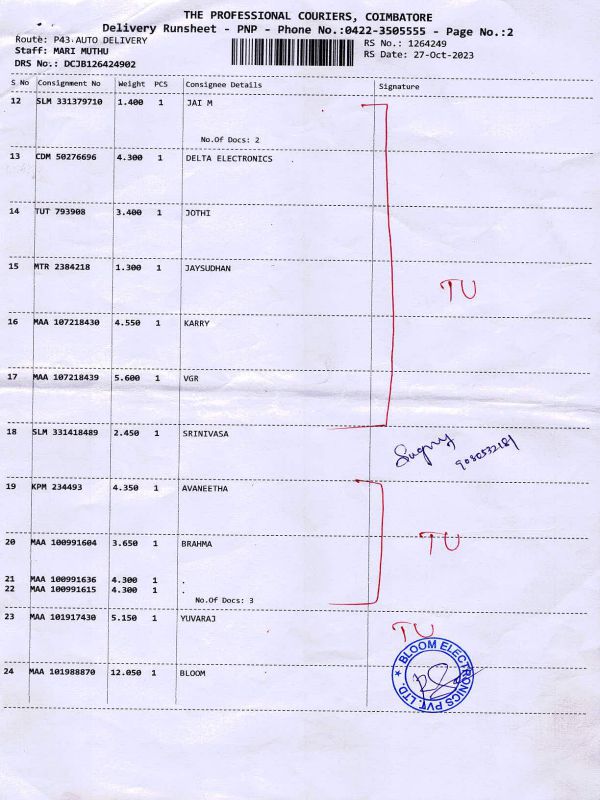 THE PROFESSIONAL COURIERS, COIMBATORE
Delivery Runsheet - PNP - Phone No.:0422-3505555 - Page No.:2
Route: P43 AUTO DELIVERY
RS No.: 1264249
Staff: MARI MUTHU
RS Date: 27-Oct-2023
DRS No.: DCJB126424902
S No Consignment No Weight PCS Consignee Details Signature
12 SLM 331379710 1.400 1 JAI M
No.Of Docs: 2
13 CDM 50276696 4.300 1 DELTA ELECTRONICS
14 TUT 793908 3.400 1 JOTHI
15 MTR 2384218 1.300 1 JAYSUDHAN
TU
16 MAA 107218430 4.550 1 KARRY
17 MAA 107218439 5.600 1 VGR
18 SLM 331418489 2.450 1 SRINIVASA
9080532181
19 KPM 234493 4.350 1 AVANEETHA
20 MAA 100991604 3.650 1 BRAHMA
TU
21 MAA 100991636 4.300 1 .
22 MAA 100991615 4.300 1 .
No.Of Docs: 3
23 MAA 101917430 5.150 1 YUVARAJ
TU
24 MAA 101988870 12.050 1 BLOOM
BLOOM ELECTRONICS PVT. LTD.